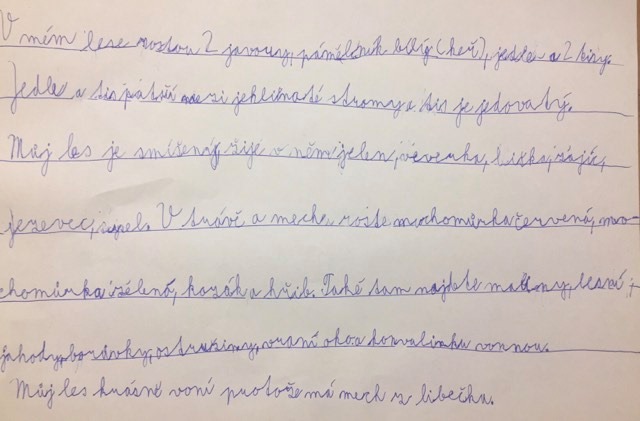 V mém lese rostou 2 javory, pámělník bílý (keř), jedle a 2 tisy.
Jedle a tis patří mezi jehličnaté stromy a tis je jedovatý.
Můj les je smíšený, žije v něm jelen, veverka, liška, zajíc,
jezevec, . V trávě a mechu roste muchomůrka červená, mu-
chomůrka zelená, kozák a hřib. Také tam najdete maliny, lesní
jahody, borůvky, ostružiny, vraní oko a konvalinku vonnou.
Můj les krásně voní protože má mech z libečka.